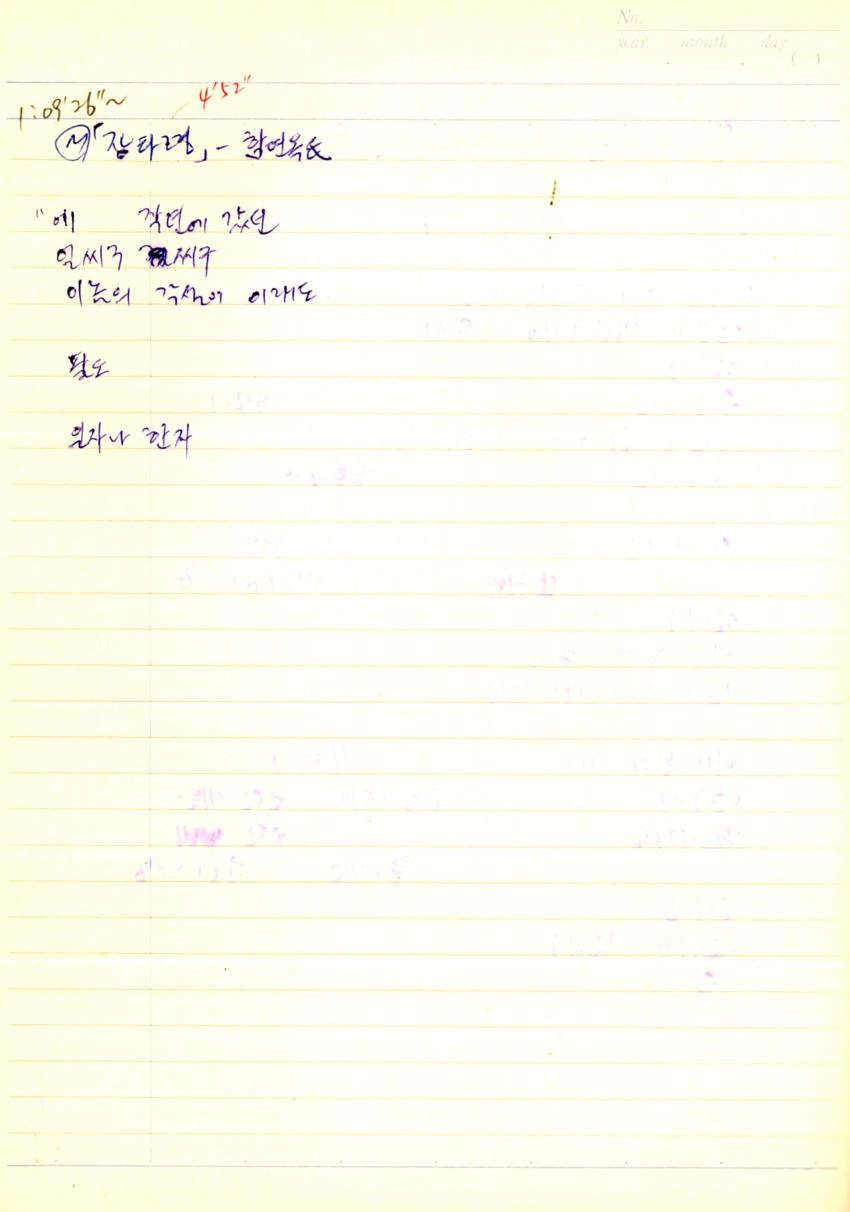 No.
year month day
( )
1:09'26"~ 4'52"
M「장타령」- 함연옥氏
"에 작년에 갔던
얼씨구 씨구
이놈의 각설이 이래도
팔도
일자나 한자